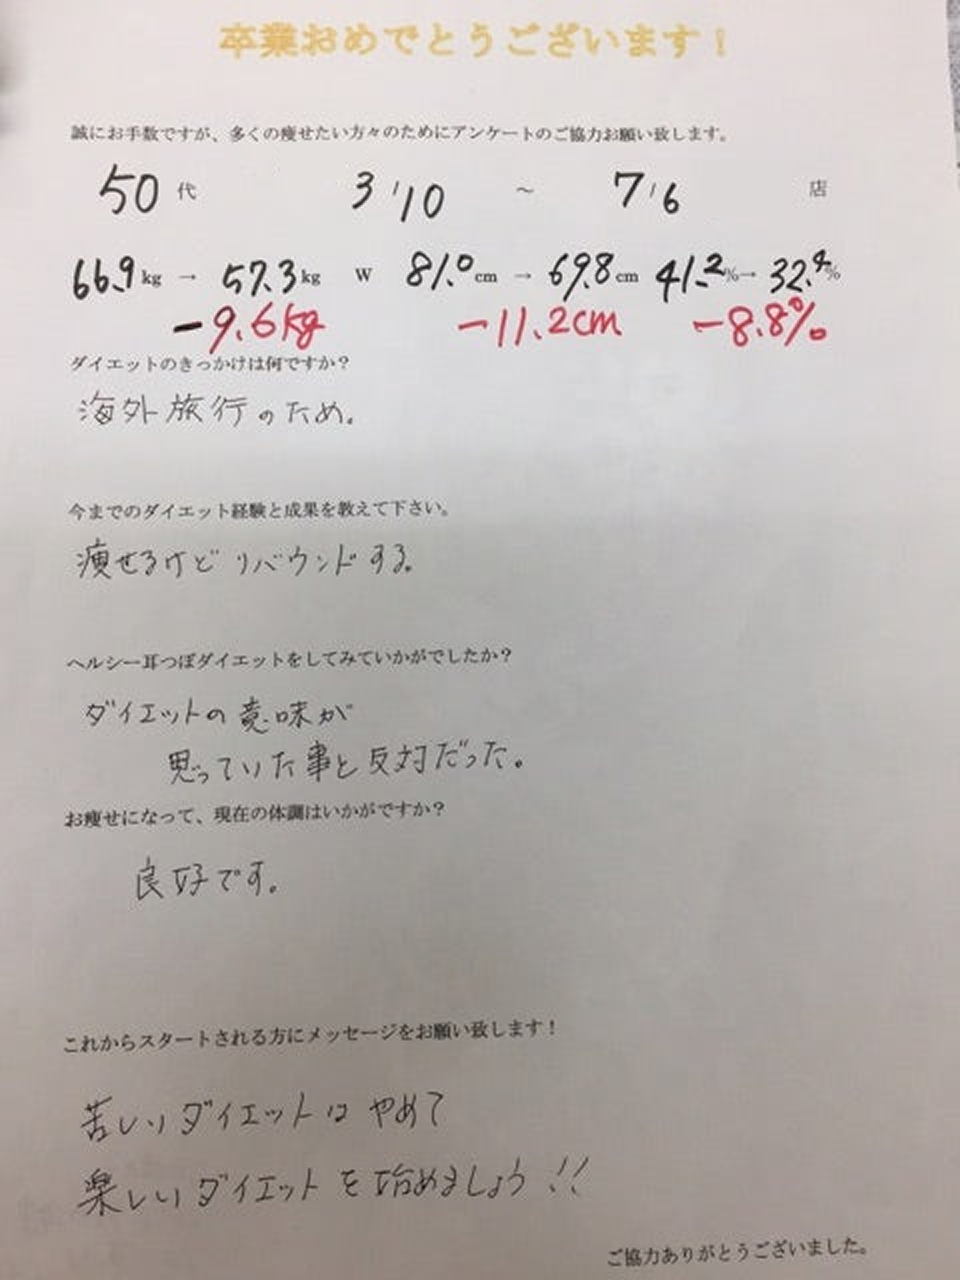 卒業おめでとうございます！
誠にお手数ですが、多くの痩せたい方々のためにアンケートのご協力お願い致します。
50代 3/10 ～ 7/6 店
66.9kg → 57.3kg W 81.0cm → 69.8cm 41.2%→ 32.4%
-9.6kg -11.2cm -8.8%
ダイエットのきっかけは何ですか？
海外旅行のため。
今までのダイエット経験と成果を教えて下さい。
痩せるけどリバウンドする。
ヘルシー耳つぼダイエットをしてみていかがでしたか？
ダイエットの意味が
思っていた事と反対だった。
お痩せになって、現在の体調はいかがですか？
良好です。
これからスタートされる方にメッセージをお願い致します！
苦しいダイエットはやめて
楽しいダイエットを始めましょう!!
ご協力ありがとうございました。